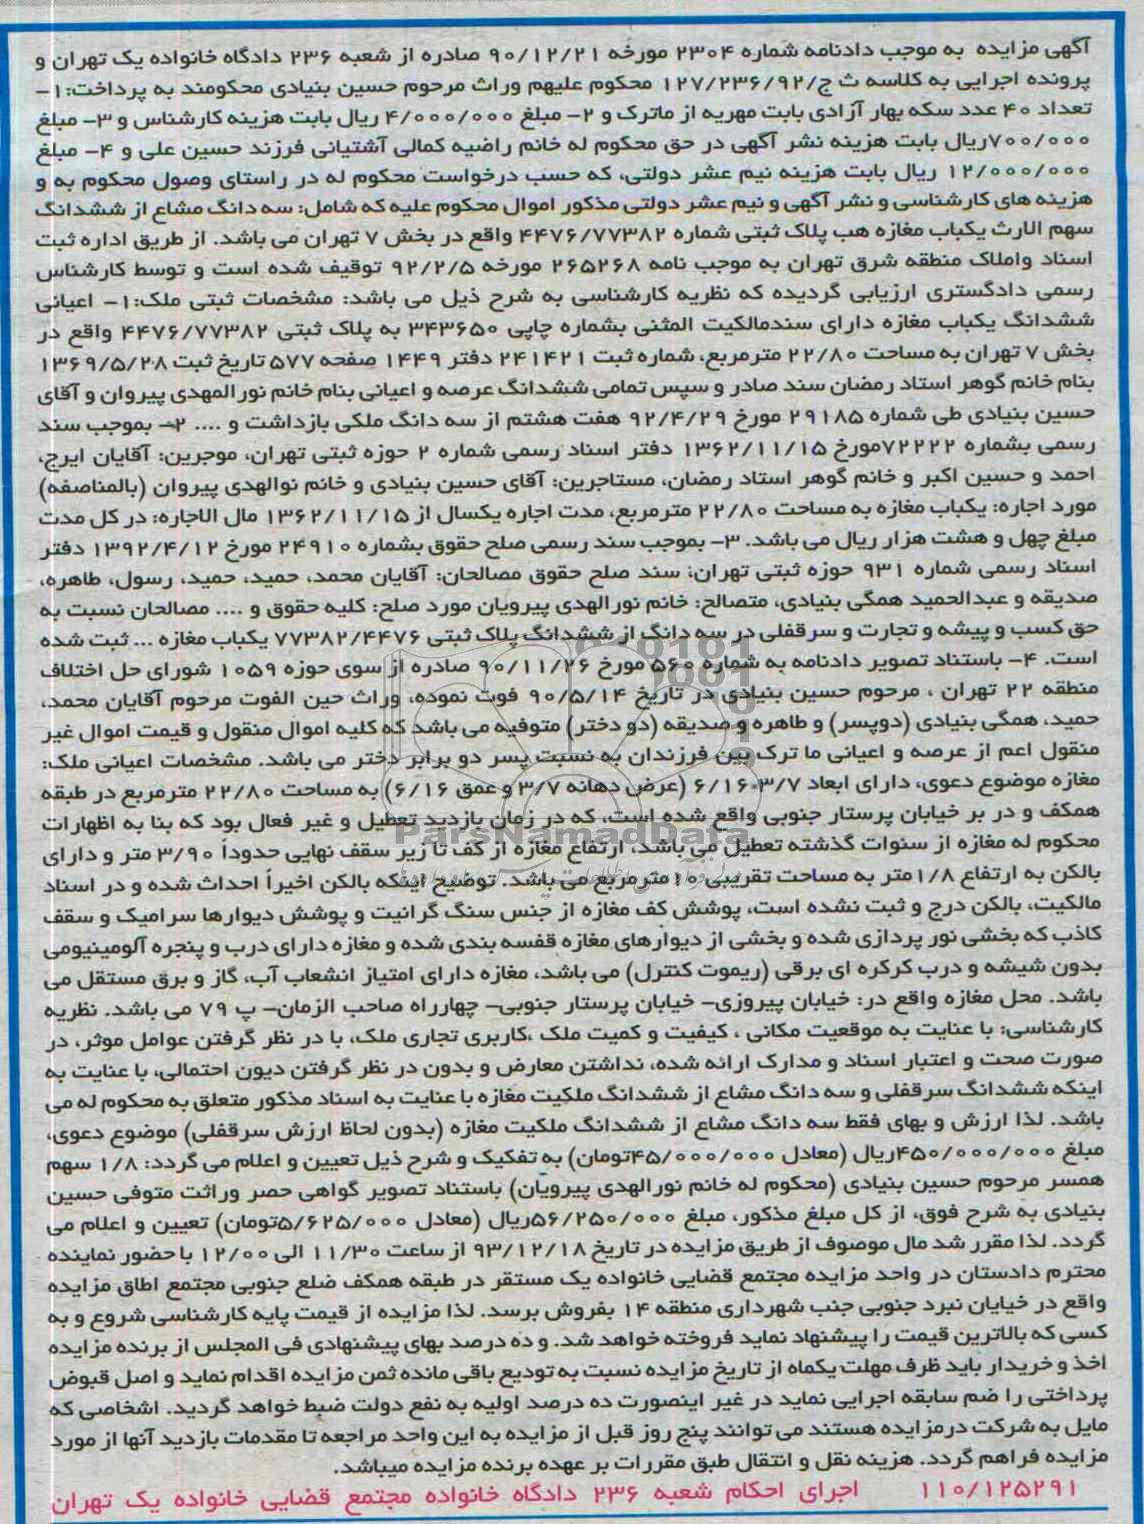 آگهی مزایده به موجب دادنامه شماره ۲۳۰۴ مورخه ۹۰/۱۲/۲۱ صادره از شعبه ۲۳۶ دادگاه خانواده یک تهران و
پرونده اجرایی به کلاسه ث ج/۱۲۷/۲۳۶/۹۲ محکوم علیهم وراث مرحوم حسین بنیادی محکومند به پرداخت:۱-
تعداد ۴۰ عدد سکه بهار آزادی بابت مهریه از ماترک و ۲- مبلغ ۴/۰۰۰/۰۰۰ ریال بابت هزینه کارشناس و ۳- مبلغ
۷۰۰/۰۰۰ریال بابت هزینه نشر آگهی در حق محکوم له خانم راضیه کمالی آشتیانی فرزند حسین علی و ۴- مبلغ
۱۲/۰۰۰/۰۰۰ ریال بابت هزینه نیم عشر دولتی، که حسب درخواست محکوم له در راستای وصول محکوم به و
هزینه های کارشناسی و نشر آگهی و نیم عشر دولتی مذکور اموال محکوم علیه که شامل: سه دانگ مشاع از ششدانگ
سهم الارث یکباب مغازه هب پلاک ثبتی شماره ۴۴۷۶/۷۷۳۸۲ واقع در بخش ۷ تهران می باشد. از طریق اداره ثبت
اسناد واملاک منطقه شرق تهران به موجب نامه ۲۶۵۲۶۸ مورخه ۹۲/۲/۵ توقیف شده است و توسط کارشناس
رسمی دادگستری ارزیابی گردیده که نظریه کارشناسی به شرح ذیل می باشد: مشخصات ثبتی ملک:۱- اعیانی
ششدانگ یکباب مغازه دارای سندمالکیت المثنی بشماره چاپی ۳۴۳۶۵۰ به پلاک ثبتی ۴۴۷۶/۷۷۳۸۲ واقع در
بخش ۷ تهران به مساحت ۲۲/۸۰ مترمربع، شماره ثبت ۲۴۱۴۲۱ دفتر ۱۴۴۹ صفحه ۵۷۷ تاریخ ثبت ۱۳۶۹/۵/۲۸
بنام خانم گوهر استاد رمضان سند صادر و سپس تمامی ششدانگ عرصه و اعیانی بنام خانم نورالمهدی پیروان و آقای
حسین بنیادی طی شماره ۲۹۱۸۵ مورخ ۹۲/۴/۲۹ هفت هشتم از سه دانگ ملکی بازداشت و .... ۲- بموجب سند
رسمی بشماره ۷۲۲۲۲مورخ ۱۳۶۲/۱۱/۱۵ دفتر اسناد رسمی شماره ۲ حوزه ثبتی تهران، موجرین: آقایان ایرج،
احمد و حسین اکبر و خانم گوهر استاد رمضان، مستاجرین: آقای حسین بنیادی و خانم نوالهدی پیروان (بالمناصفه)
مورد اجاره: یکباب مغازه به مساحت ۲۲/۸۰ مترمربع، مدت اجاره یکسال از ۱۳۶۲/۱۱/۱۵ مال الاجاره: در کل مدت
مبلغ چهل و هشت هزار ریال می باشد. ۳- بموجب سند رسمی صلح حقوق بشماره ۲۴۹۱۰ مورخ ۱۳۹۲/۴/۱۲ دفتر
اسناد رسمی شماره ۹۳۱ حوزه ثبتی تهران؛ سند صلح حقوق مصالحان: آقایان محمد، حمید، حمید، رسول، طاهره،
صدیقه و عبدالحمید همگی بنیادی، متصالح: خانم نورالهدی پیرویان مورد صلح: کلیه حقوق و .... مصالحان نسبت به
حق کسب و پیشه و تجارت و سرقفلی در سه دانگ از ششدانگ پلاک ثبتی ۷۷۳۸۲/۴۴۷۶ یکباب مغازه ... ثبت شده
است. ۴- باستناد تصویر دادنامه به شماره ۵۶۰ مورخ ۹۰/۱۱/۲۶ صادره از سوی حوزه ۱۰۵۹ شورای حل اختلاف
منطقه ۲۲ تهران ، مرحوم حسین بنیادی در تاریخ ۹۰/۵/۱۴ فوت نموده، وراث حین الفوت مرحوم آقایان محمد،
حمید، همگی بنیادی (دوپسر) و طاهره و صدیقه (دو دختر) متوفیه می باشد که کلیه اموال منقول و قیمت اموال غیر
منقول اعم از عرصه و اعیانی ما ترک بین فرزندان به نسبت پسر دو برابر دختر می باشد. مشخصات اعیانی ملک:
مغازه موضوع دعوی، دارای ابعاد ۶/۱۶*۳/۷ (عرض دهانه ۳/۷ و عمق ۶/۱۶) به مساحت ۲۲/۸۰ مترمربع در طبقه
همکف و در بر خیابان پرستار جنوبی واقع شده است، که در زمان بازدید تعطیل و غیر فعال بود که بنا به اظهارات
محکوم له مغازه از سنوات گذشته تعطیل می باشد، ارتفاع مغازه از کف تا زیر سقف نهایی حدوداً ۳/۹۰ متر و دارای
بالکن به ارتفاع ۱/۸متر به مساحت تقریبی ۱۰مترمربع می باشد. توضیح اینکه بالکن اخیراً احداث شده و در اسناد
مالکیت، بالکن درج و ثبت نشده است، پوشش کف مغازه از جنس سنگ گرانیت و پوشش دیوارها سرامیک و سقف
کاذب که بخشی نور پردازی شده و بخشی از دیوارهای مغازه قفسه بندی شده و مغازه دارای درب و پنجره آلومینیومی
بدون شیشه و درب کرکره ای برقی (ریموت کنترل) می باشد، مغازه دارای امتیاز انشعاب آب، گاز و برق مستقل می
باشد. محل مغازه واقع در: خیابان پیروزی- خیابان پرستار جنوبی- چهارراه صاحب الزمان- پ ۷۹ می باشد. نظریه
کارشناسی: با عنایت به موقعیت مکانی ، کیفیت و کمیت ملک ،کاربری تجاری ملک، با در نظر گرفتن عوامل موثر، در
صورت صحت و اعتبار اسناد و مدارک ارائه شده، نداشتن معارض و بدون در نظر گرفتن دیون احتمالی، با عنایت به
اینکه ششدانگ سرقفلی و سه دانگ مشاع از ششدانگ ملکیت مغازه با عنایت به اسناد مذکور متعلق به محکوم له می
باشد. لذا ارزش و بهای فقط سه دانگ مشاع از ششدانگ ملکیت مغازه (بدون لحاظ ارزش سرقفلی) موضوع دعوی،
مبلغ ۴۵۰/۰۰۰/۰۰۰ریال (معادل ۴۵/۰۰۰/۰۰۰تومان) به تفکیک و شرح ذیل تعیین و اعلام می گردد: ۱/۸ سهم
همسر مرحوم حسین بنیادی (محکوم له خانم نورالهدی پیرویان) باستناد تصویر گواهی حصر وراثت متوفی حسین
بنیادی به شرح فوق، از کل مبلغ مذکور، مبلغ ۵۶/۲۵۰/۰۰۰ریال (معادل ۵/۶۲۵/۰۰۰تومان) تعیین و اعلام می
گردد. لذا مقرر شد مال موصوف از طریق مزایده در تاریخ ۹۳/۱۲/۱۸ از ساعت ۱۱/۳۰ الی ۱۲/۰۰ با حضور نماینده
محترم دادستان در واحد مزایده مجتمع قضایی خانواده یک مستقر در طبقه همکف ضلع جنوبی مجتمع اطاق مزایده
واقع در خیابان نبرد جنوبی جنب شهرداری منطقه ۱۴ بفروش برسد. لذا مزایده از قیمت پایه کارشناسی شروع و به
کسی که بالاترین قیمت را پیشنهاد نماید فروخته خواهد شد. و ده درصد بهای پیشنهادی فی المجلس از برنده مزایده
اخذ و خریدار باید ظرف مهلت یکماه از تاریخ مزایده نسبت به تودیع باقی مانده ثمن مزایده اقدام نماید و اصل قبوض
پرداختی را ضم سابقه اجرایی نماید در غیر اینصورت ده درصد اولیه به نفع دولت ضبط خواهد گردید. اشخاصی که
مایل به شرکت درمزایده هستند می توانند پنج روز قبل از مزایده به این واحد مراجعه تا مقدمات بازدید آنها از مورد
مزایده فراهم گردد. هزینه نقل و انتقال طبق مقررات بر عهده برنده مزایده میباشد.
۱۱۰/۱۲۵۲۹۱ اجرای احکام شعبه ۲۳۶ دادگاه خانواده مجتمع قضایی خانواده یک تهران
ParsNamadData